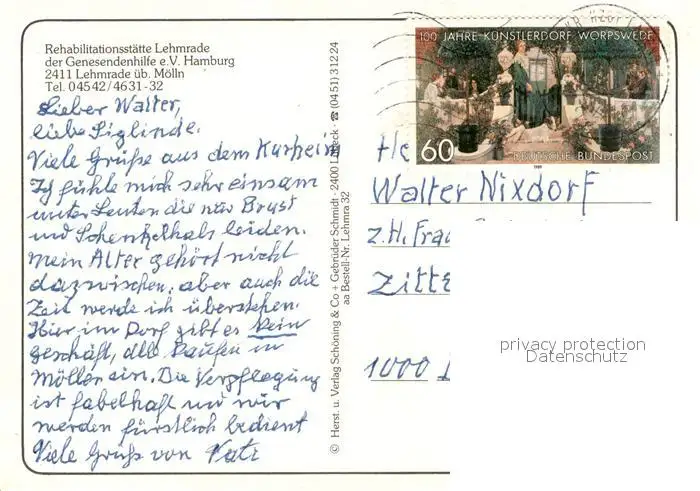 Rehabilitationsstätte Lehmrade
der Genesendenhilfe e.V. Hamburg
2411 Lehmrade üb. Mölln
Tel. 04542/4631-32
Lieber Walter,
liebe Siglinde.
Viele Grüße aus dem Kurheim
Ich fühle mich sehr einsam
unter Leuten die nur Brust
und Schenkelhals leiden.
Mein Alter gehört nicht
dazwischen, aber auch die
Zeit werde ich überstehen.
Hier im Dorf gibt es kein
geschäft, alle kaufen in
Möllen ein. Die Verpflegung
ist fabelhaft und wir
werden fürstlich bedient
Viele Grüße von
© Herst. u. Verlag Schöning & Co + Gebrüder Schmidt · 2400 Lübeck · ☎ (0451) 31224
aa Bestell-Nr. Lehmra 32
100 JAHRE KÜNSTLERDORF WORPSWEDE
60 DEUTSCHE BUNDESPOST
1989
He
Walter Nixdorf
z.H. Frau
Zitte
1000
privacy protection
Datenschutz